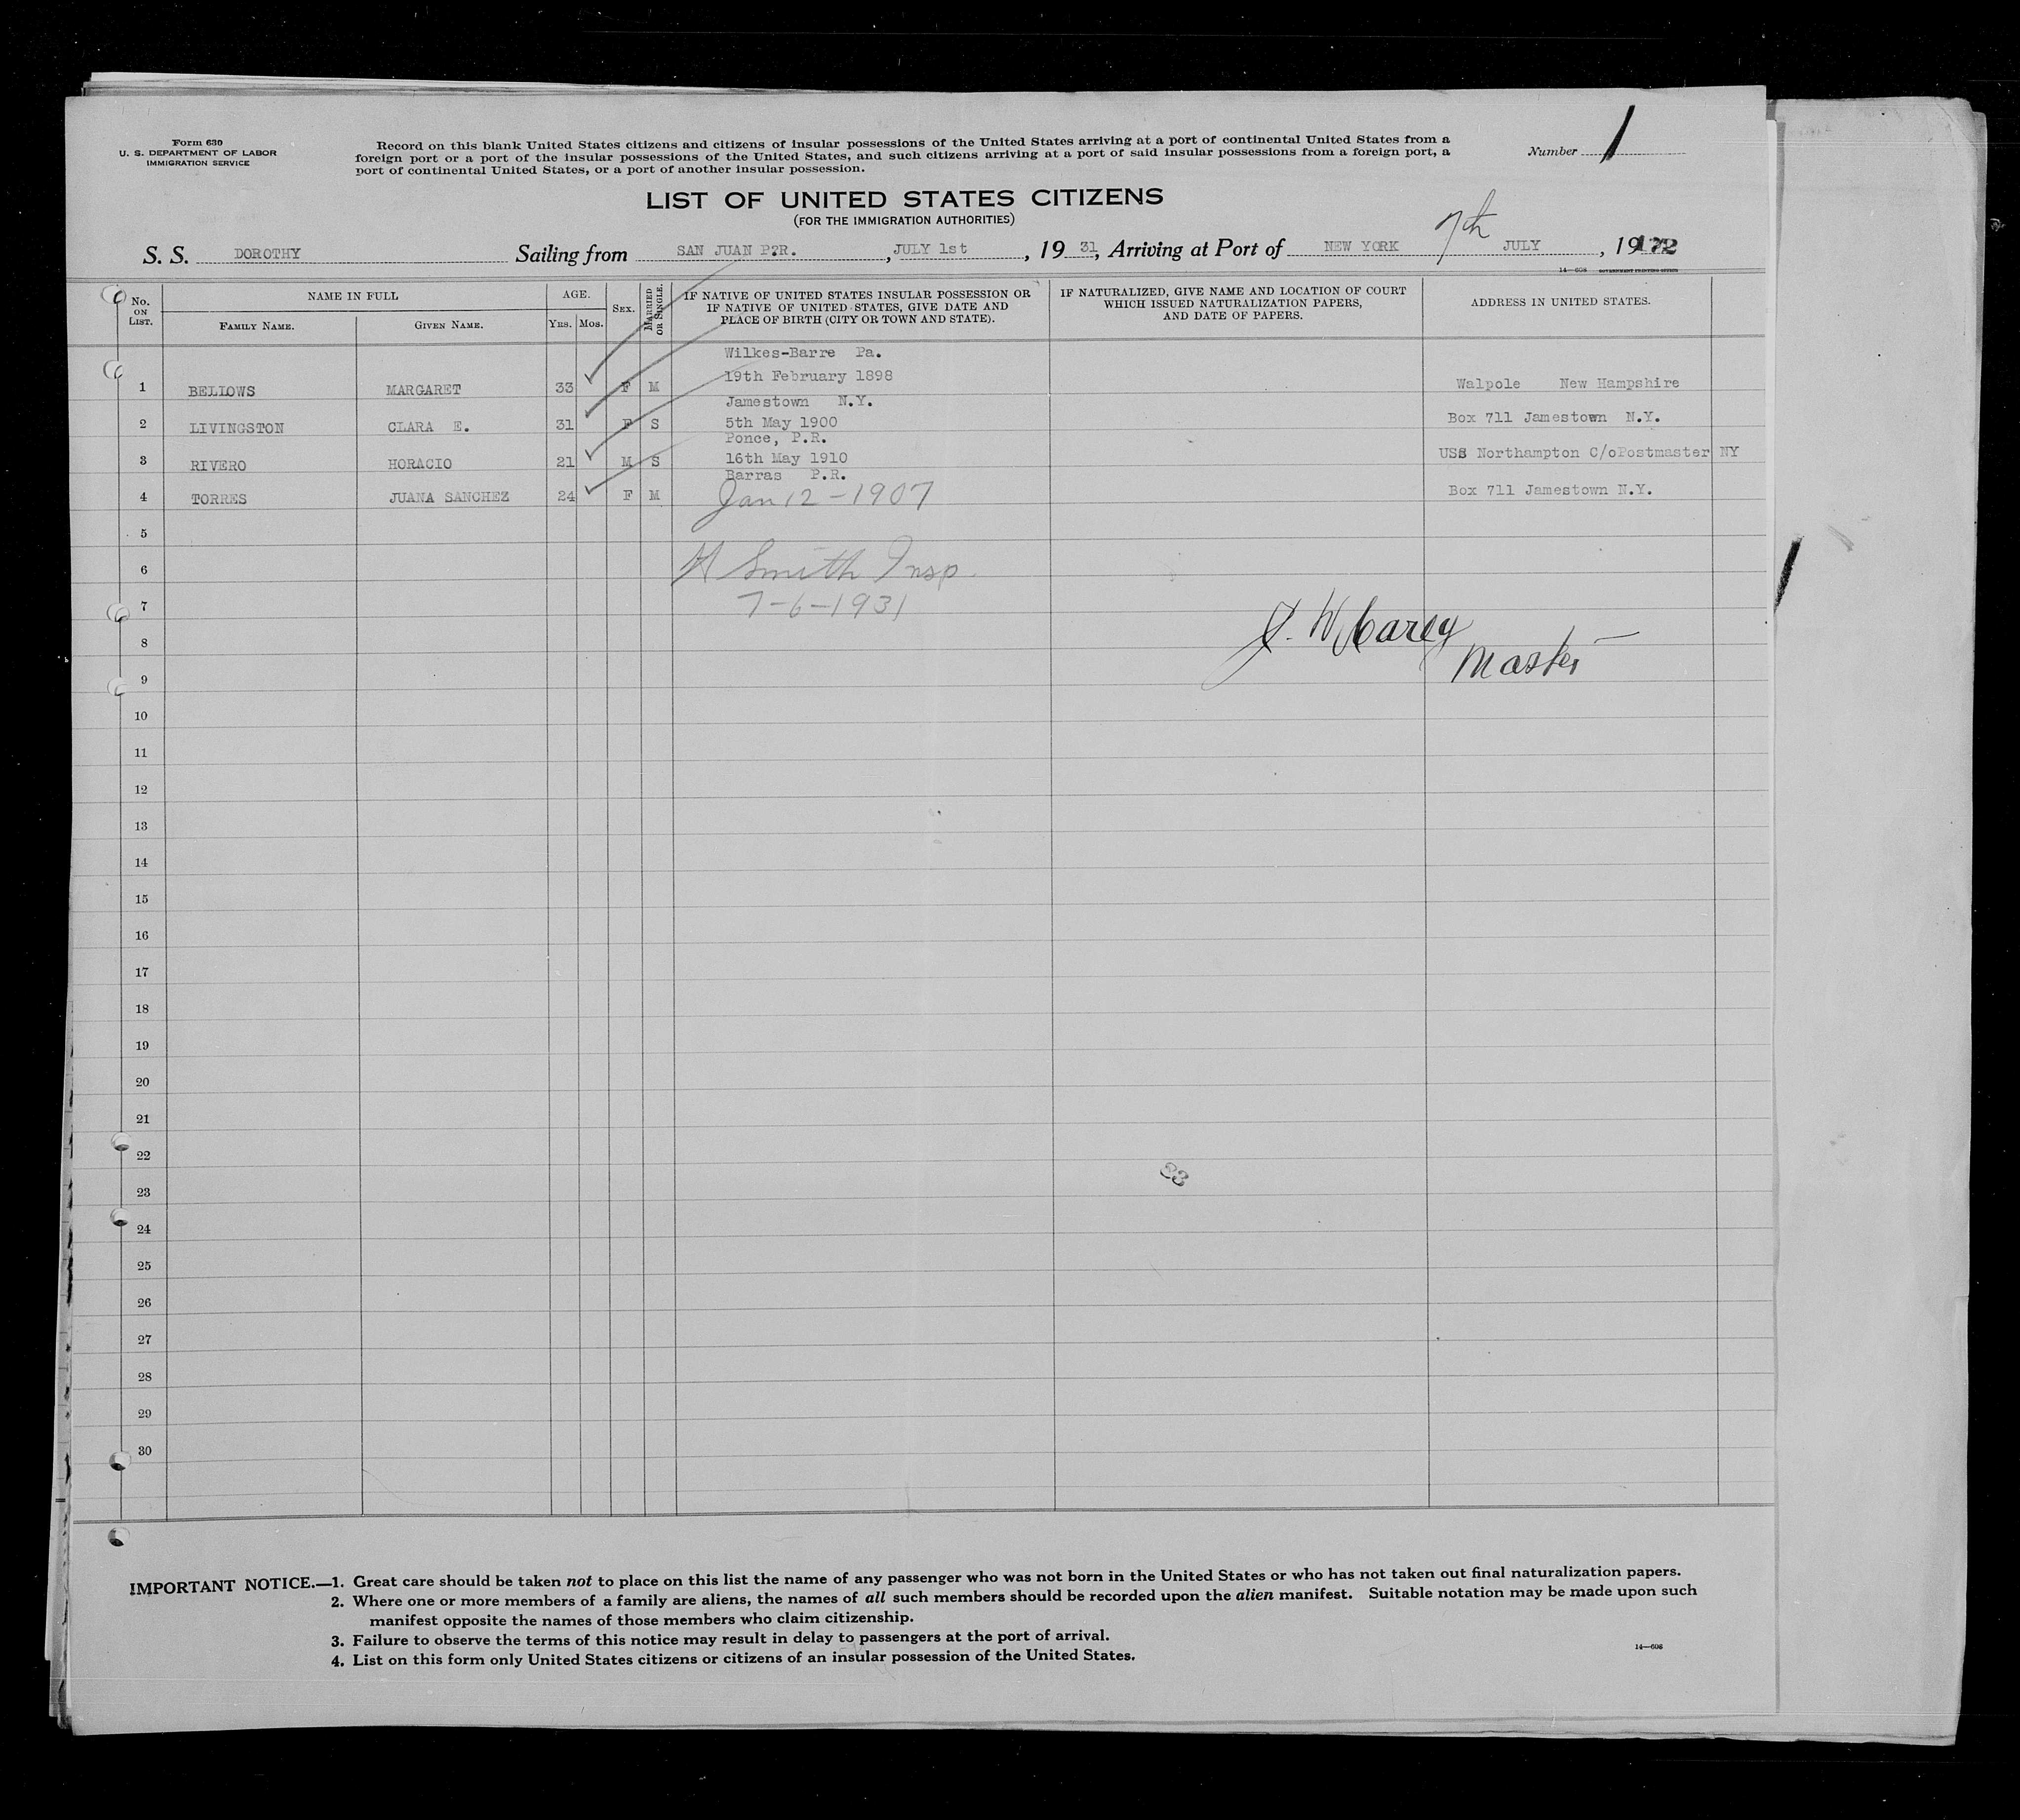 Form 630
U. S. DEPARTMENT OF LABOR
IMMIGRATION SERVICE
Record on this blank United States citizens and citizens of insular possessions of the United States arriving at a port of continental United States from a
foreign port or a port of the insular possessions of the United States, and such citizens arriving at a port of said insular possessions from a foreign port, a
port of continental United States, or a port of another insular possession.
Number 1
LIST OF UNITED STATES CITIZENS
(FOR THE IMMIGRATION AUTHORITIES)
S. S. DOROTHY Sailing from SAN JUAN P.R. , JULY 1st , 19 31, Arriving at Port of NEW YORK 7th JULY , 19
14—608 GOVERNMENT PRINTING OFFICE
No. ON LIST.
NAME IN FULL
FAMILY NAME. GIVEN NAME.
AGE.
YRS. MOS.
SEX.
MARRIED OR SINGLE.
IF NATIVE OF UNITED STATES INSULAR POSSESSION OR
IF NATIVE OF UNITED STATES, GIVE DATE AND
PLACE OF BIRTH (CITY OR TOWN AND STATE).
IF NATURALIZED, GIVE NAME AND LOCATION OF COURT
WHICH ISSUED NATURALIZATION PAPERS,
AND DATE OF PAPERS.
ADDRESS IN UNITED STATES.
Wilkes-Barre Pa.
1 BELLOWS MARGARET 33 F M 19th February 1898 Walpole New Hampshire
Jamestown N.Y.
2 LIVINGSTON CLARA E. 31 F S 5th May 1900 Box 711 Jamestown N.Y.
Ponce, P.R.
3 RIVERO HORACIO 21 M S 16th May 1910 USS Northampton C/oPostmaster NY
Barras P.R.
4 TORRES JUANA SANCHEZ 24 F M Jan 12-1907 Box 711 Jamestown N.Y.
5
6 Smith Insp.
7 7-6-1931
J. W. Carey
8
Master
9
10
11
12
13
14
15
16
17
18
19
20
21
22
23
24
25
26
27
28
29
30
IMPORTANT NOTICE.—1. Great care should be taken not to place on this list the name of any passenger who was not born in the United States or who has not taken out final naturalization papers.
2. Where one or more members of a family are aliens, the names of all such members should be recorded upon the alien manifest. Suitable notation may be made upon such
manifest opposite the names of those members who claim citizenship.
3. Failure to observe the terms of this notice may result in delay to passengers at the port of arrival.
4. List on this form only United States citizens or citizens of an insular possession of the United States.
14—608